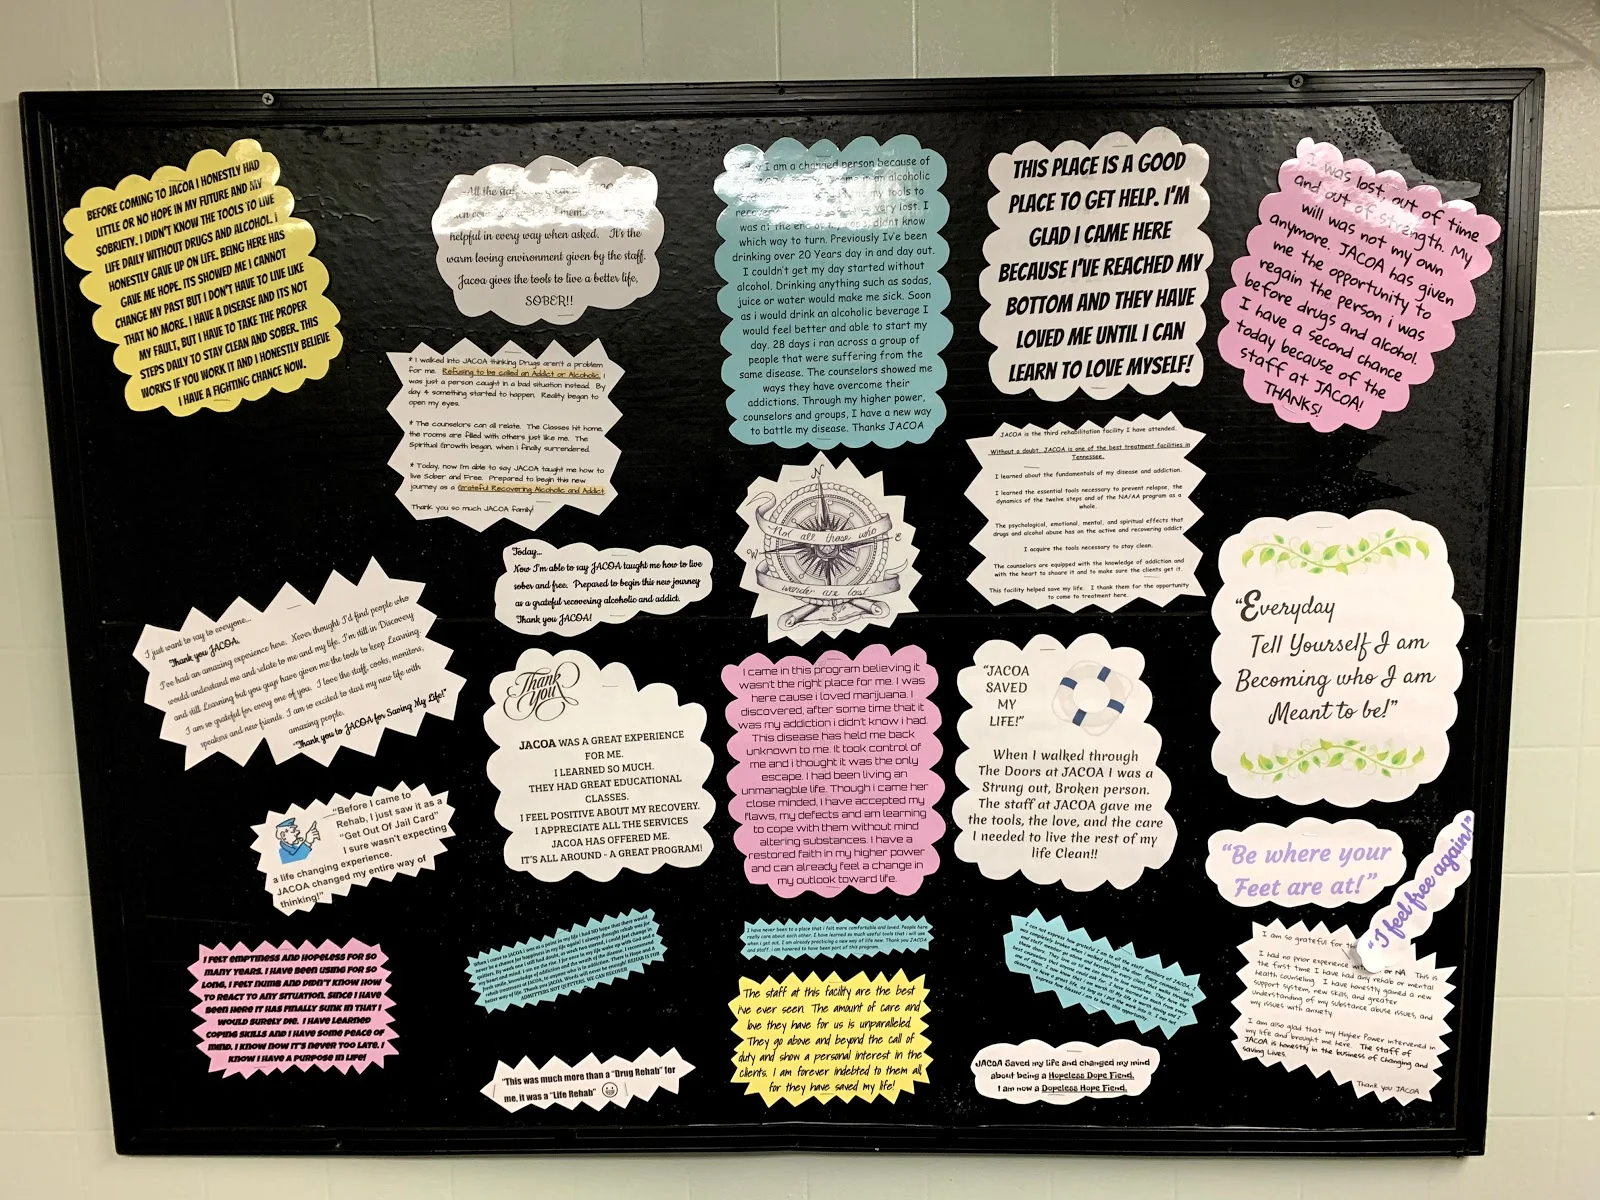 BEFORE COMING TO JACOA I HONESTLY HAD
LITTLE OR NO HOPE IN MY FUTURE AND MY
SOBRIETY. I DIDN'T KNOW THE TOOLS TO LIVE
LIFE DAILY WITHOUT DRUGS AND ALCOHOL. I
HONESTLY GAVE UP ON LIFE. BEING HERE HAS
GAVE ME HOPE. ITS SHOWED ME I CANNOT
CHANGE MY PAST BUT I DON'T HAVE TO LIVE LIKE
THAT NO MORE. I HAVE A DISEASE AND ITS NOT
MY FAULT, BUT I HAVE TO TAKE THE PROPER
STEPS DAILY TO STAY CLEAN AND SOBER. THIS
WORKS IF YOU WORK IT AND I HONESTLY BELIEVE
I HAVE A FIGHTING CHANCE NOW.
All the staff
helpful in every way when asked. It's the
warm loving environment given by the staff.
Jacoa gives the tools to live a better life,
SOBER!!
I am a changed person because of
an alcoholic
my tools to
very lost. I
was at the end of my didnt know
which way to turn. Previously I've been
drinking over 20 Years day in and day out.
I couldn't get my day started without
alcohol. Drinking anything such as sodas,
juice or water would make me sick. Soon
as i would drink an alcoholic beverage I
would feel better and able to start my
day. 28 days i ran across a group of
people that were suffering from the
same disease. The counselors showed me
ways they have overcome their
addictions. Through my higher power,
counselors and groups, I have a new way
to battle my disease. Thanks JACOA
THIS PLACE IS A GOOD
PLACE TO GET HELP. I'M
GLAD I CAME HERE
BECAUSE I'VE REACHED MY
BOTTOM AND THEY HAVE
LOVED ME UNTIL I CAN
LEARN TO LOVE MYSELF!
I was lost, out of time
and out of strength. My
will was not my own
anymore. JACOA has given
me the opportunity to
regain the person i was
before drugs and alcohol.
I have a second chance
today because of the
staff at JACOA!
THANKS!
* I walked into JACOA thinking Drugs aren't a problem
for me. Refusing to be called an Addict or Alcoholic, I
was just a person caught in a bad situation instead. By
day 4 something started to happen. Reality began to
open my eyes.
* The counselors can all relate. The Classes hit home,
the rooms are filled with others just like me. The
Spiritual Growth began, when I finally surrendered.
* Today, now I'm able to say JACOA taught me how to
live Sober and Free. Prepared to begin this new
journey as a Grateful Recovering Alcoholic and Addict.
Thank you so much JACOA family!
N
W
E
Not all those who
wander are lost
JACOA is the third rehabilitation facility I have attended.
Without a doubt, JACOA is one of the best treatment facilities in
Tennessee.
I learned about the fundamentals of my disease and addiction.
I learned the essential tools necessary to prevent relapse, the
dynamics of the twelve steps and of the NA/AA program as a
whole.
The psychological, emotional, mental, and spiritual effects that
drugs and alcohol abuse has on the active and recovering addict.
I acquire the tools necessary to stay clean.
The counselors are equipped with the knowledge of addiction and
with the heart to shoare it and to make sure the clients get it.
This facility helped save my life. I thank them for the opportunity
to come to treatment here.
Today...
Now I'm able to say JACOA taught me how to live
sober and free. Prepared to begin this new journey
as a grateful recovering alcoholic and addict.
Thank you JACOA!
"Everyday
Tell Yourself I am
Becoming who I am
Meant to be!"
I just want to say to everyone...
Thank you JACOA.
I've had an amazing experience here. Never thought I'd find people who
would understand me and relate to me and my life. I'm still in Discovery
and still Learning but you guys have given me the tools to keep Learning.
I am so grateful for every one of you. I love the staff, cooks, monitors,
speakers and new friends. I am so excited to start my new life with
amazing people.
"Thank you to JACOA for Saving My Life!"
Thank
You
JACOA WAS A GREAT EXPERIENCE
FOR ME.
I LEARNED SO MUCH.
THEY HAD GREAT EDUCATIONAL
CLASSES.
I FEEL POSITIVE ABOUT MY RECOVERY.
I APPRECIATE ALL THE SERVICES
JACOA HAS OFFERED ME.
IT'S ALL AROUND - A GREAT PROGRAM!
I came in this program believing it
wasn't the right place for me. I was
here cause i loved marijuana. I
discovered, after some time that it
was my addiction i didn't know i had.
This disease has held me back
unknown to me. It took control of
me and i thought it was the only
escape. I had been living an
unmanagble life. Though i came her
close minded, i have accepted my
flaws, my defects and am learning
to cope with them without mind
altering substances. I have a
restored faith in my higher power
and can already feel a change in
my outlook toward life.
"JACOA
SAVED
MY
LIFE!"
When I walked through
The Doors at JACOA I was a
Strung out, Broken person.
The staff at JACOA gave me
the tools, the love, and the care
I needed to live the rest of my
life Clean!!
"Before I came to
Rehab, I just saw it as a
"Get Out Of Jail Card"
I sure wasn't expecting
a life changing experience.
JACOA changed my entire way of
thinking!"
"Be where your
Feet are at!"
"I feel free again!"
I FELT EMPTINESS AND HOPELESS FOR SO
MANY YEARS. I HAVE BEEN USING FOR SO
LONG, I FELT NUMB AND DIDN'T KNOW HOW
TO REACT TO ANY SITUATION. SINCE I HAVE
BEEN HERE IT HAS FINALLY SUNK IN THAT I
WOULD SURELY DIE. I HAVE LEARNED
COPING SKILLS AND I HAVE SOME PEACE OF
MIND. I KNOW NOW IT'S NEVER TOO LATE. I
KNOW I HAVE A PURPOSE IN LIFE!
When I came to JACOA I was at a point in my life i had NO hope that there would
ADMITTERS NOT QUITTERS, BECAUSE WE CAN RECOVER
I have never been to a place that i felt more comfortable and loved. People here
really care about each other. I have learned so much useful tools that i will use
when i get out. I am already practicing a new way of life now. Thank you JACOA
and staff, i am honored to have been part of this program.
The staff at this facility are the best
i've ever seen. The amount of care and
love they have for us is unparalleled.
They go above and beyond the call of
duty and show a personal interest in the
clients. I am forever indebted to them all,
for they have saved my life!
I can not express how grateful i am to all the staff members of JACOA. I
I am so grateful for
I had no prior experience with or NA. This is
the first time I have had any rehab or mental
health counseling. I have honestly gained a new
support system, new skills, and greater
understanding of my substance abuse issues, and
my issues with anxiety.
I am also glad that my Higher Power intervened in
my life and brought me here. The staff of
JACOA is honestly in the business of Changing and
saving Lives.
Thank you JACOA
"This was much more than a "Drug Rehab" for
me, it was a "Life Rehab"
JACOA Saved my life and changed my mind
about being a Hopeless Dope Fiend.
I am now a Dopeless Hope Fiend.